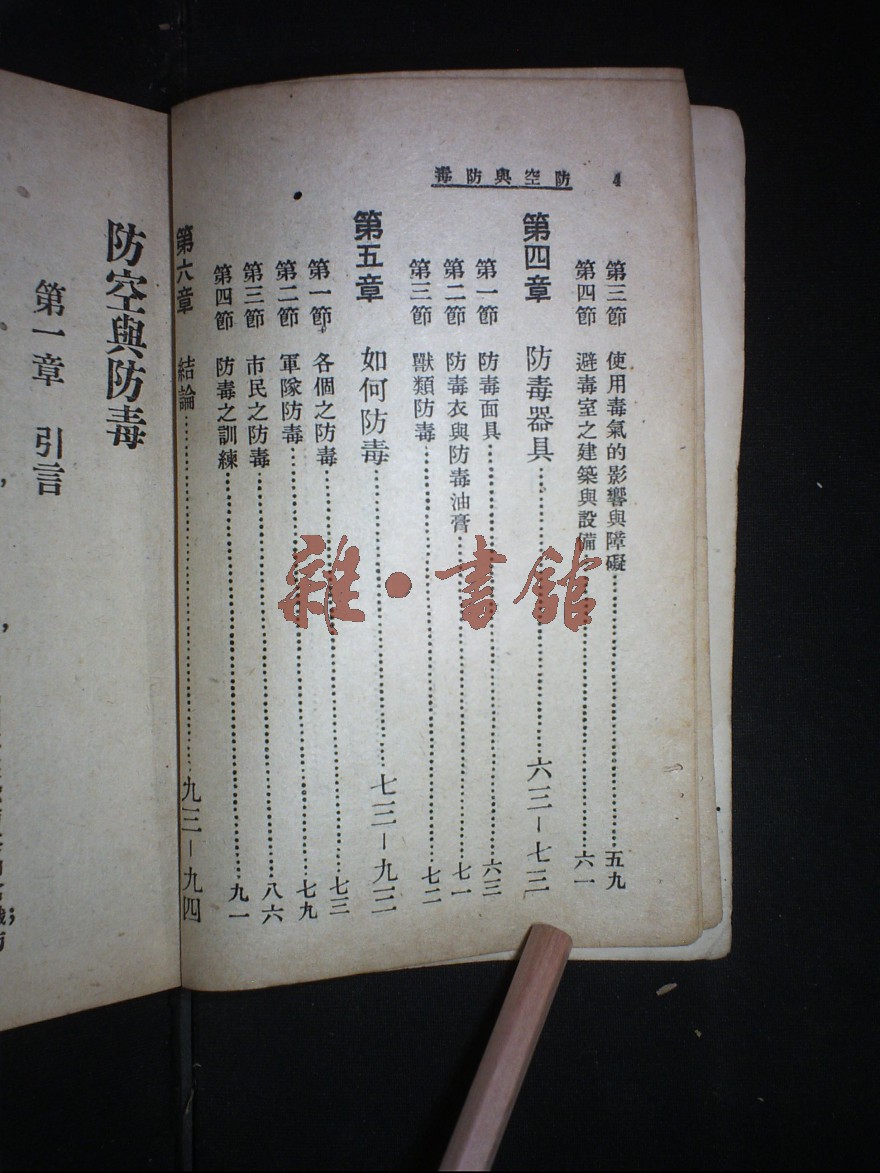 4 防空與防毒
第三節 使用毒氣的影響與障礙……五九
第四節 避毒室之建築與設備……六一
第四章 防毒器具……六三－七三
第一節 防毒面具……六三
第二節 防毒衣與防毒油膏……七一
第三節 獸類防毒……七二
第五章 如何防毒……七三－九三
第一節 各個之防毒……七三
第二節 軍隊防毒……七九
第三節 市民之防毒……八六
第四節 防毒之訓練……九一
第六章 結論……九三－九四
防空與防毒
第一章 引言
雜·書館